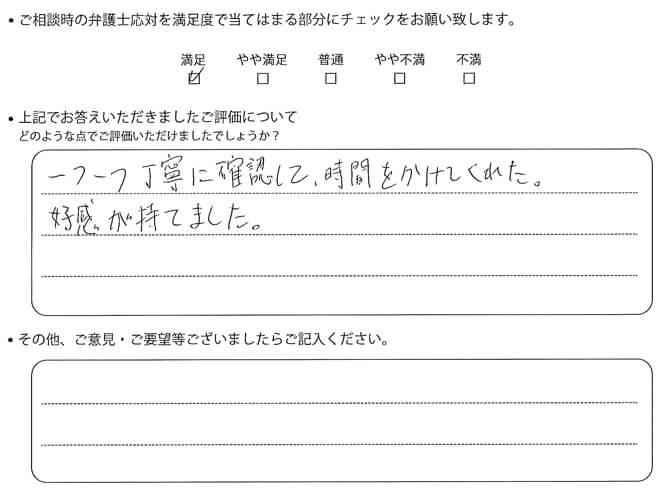 • ご相談時の弁護士応対を満足度で当てはまる部分にチェックをお願い致します。
満足 やや満足 普通 やや不満 不満
☑ ☐ ☐ ☐ ☐
• 上記でお答えいただきましたご評価について
どのような点でご評価いただけましたでしょうか？
一つ一つ丁寧に確認して、時間をかけてくれた。
好感が持てました。
• その他、ご意見・ご要望等ございましたらご記入ください。